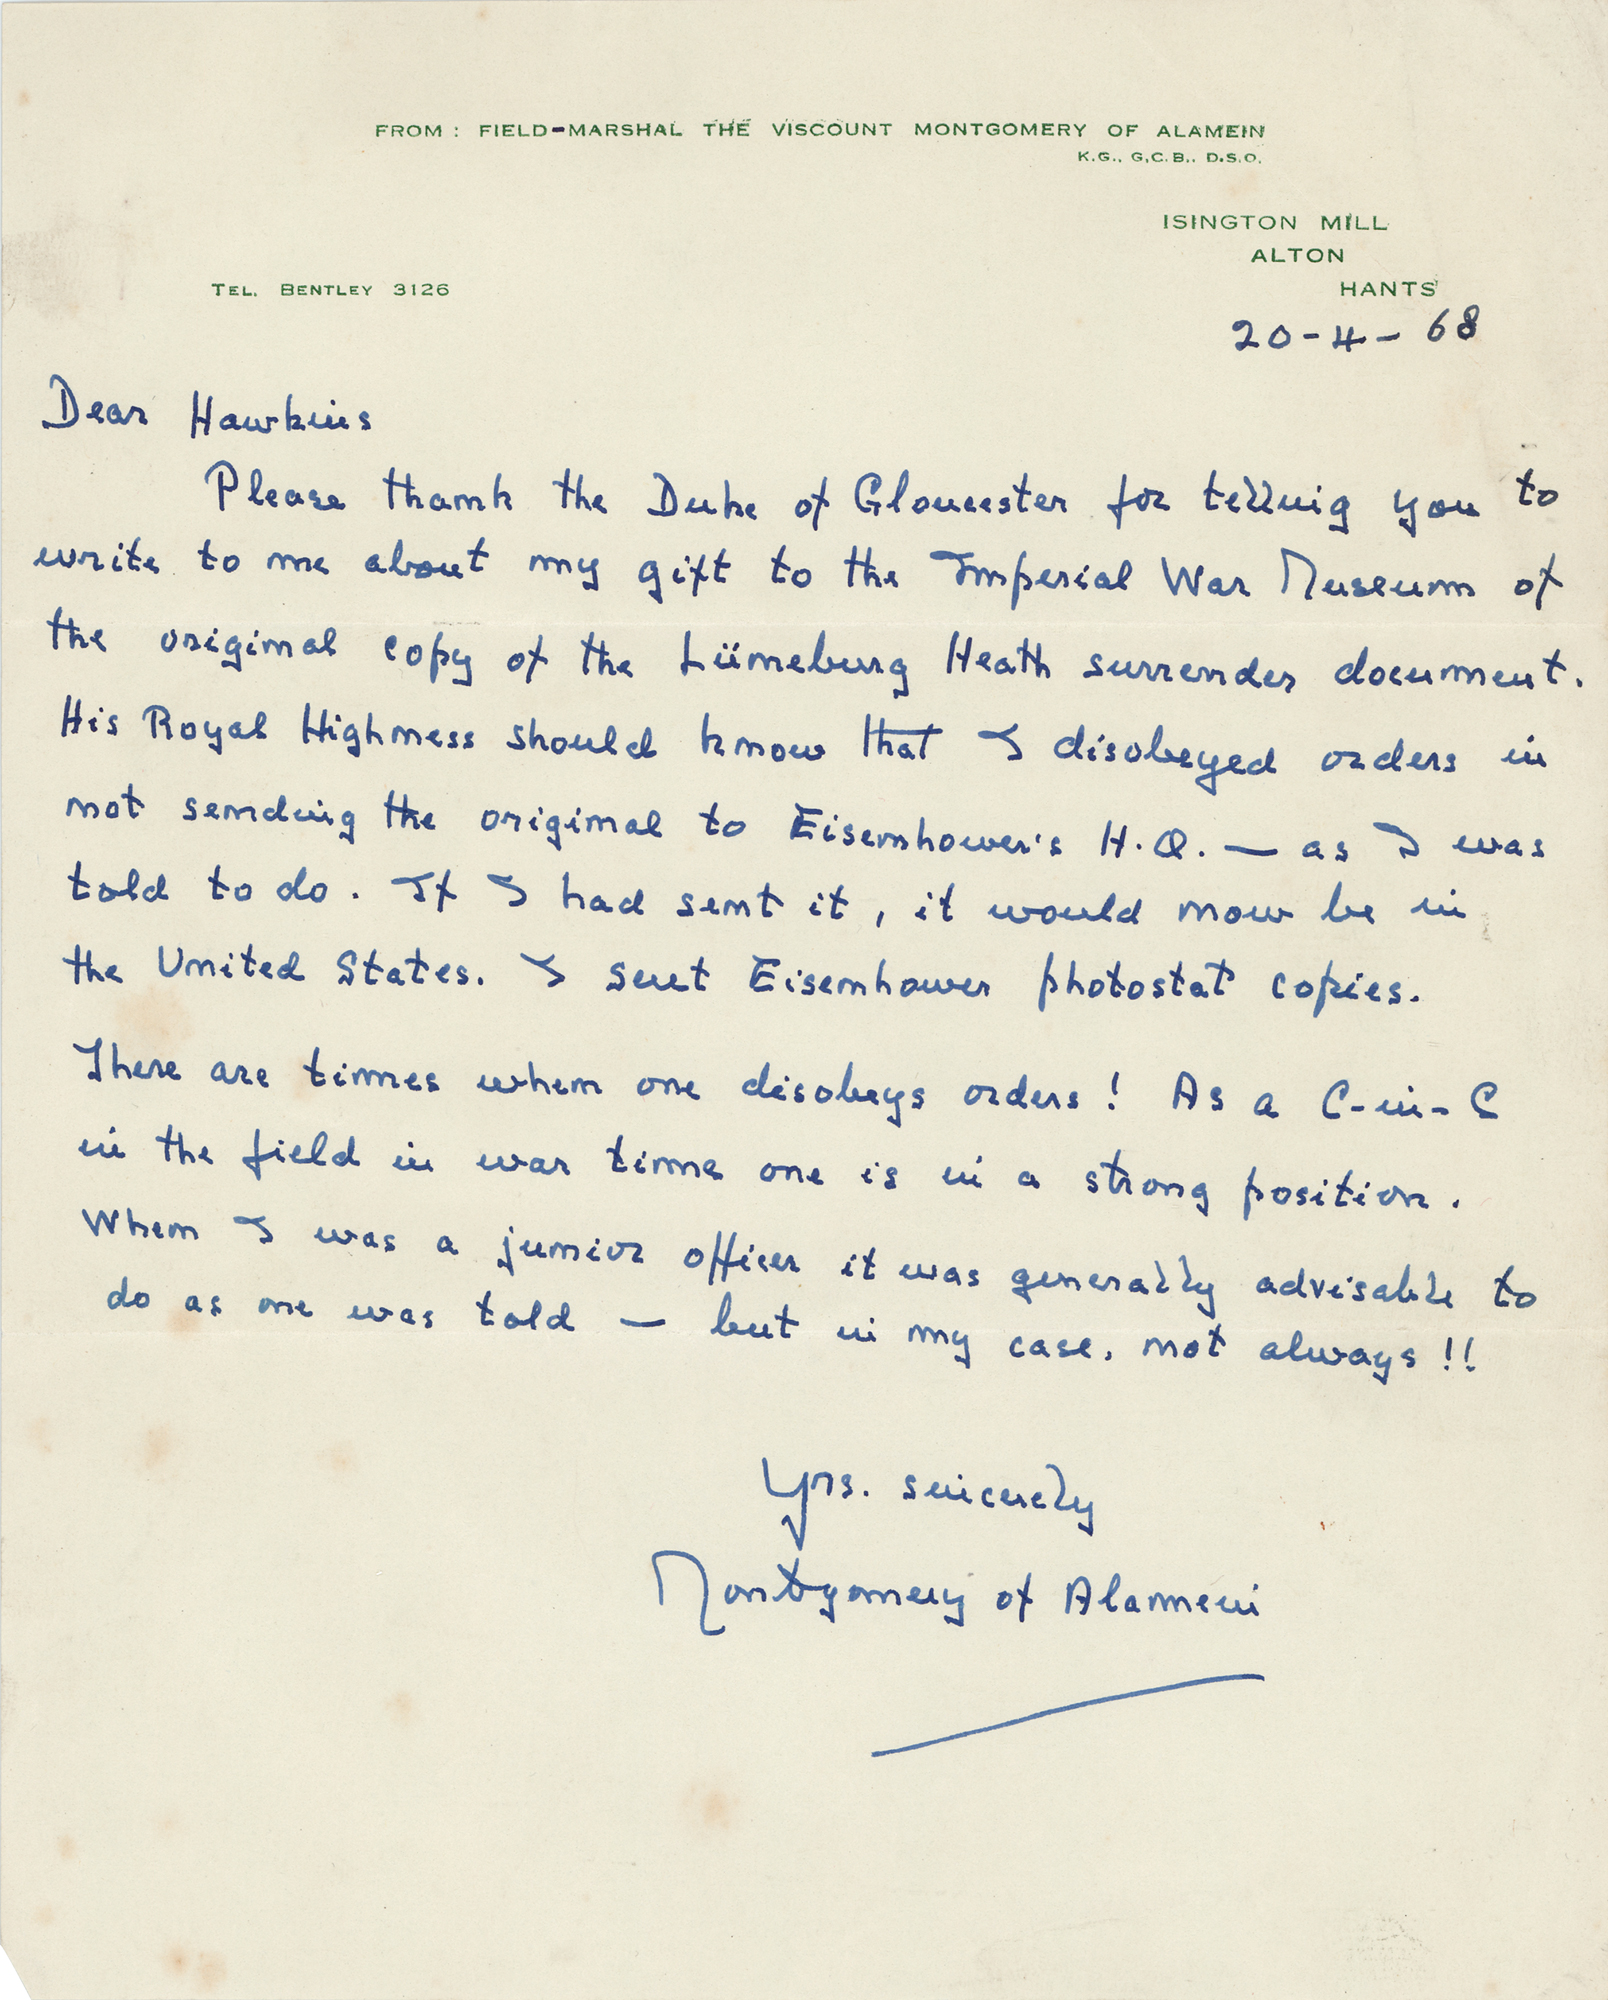 FROM : FIELD-MARSHAL THE VISCOUNT MONTGOMERY OF ALAMEIN
K.G., G.C.B., D.S.O.
ISINGTON MILL
ALTON
TEL. BENTLEY 3126
HANTS
20-4-68
Dear Hawkins
Please thank the Duke of Gloucester for telling you to
write to me about my gift to the Imperial War Museum of
the original copy of the Lüneburg Heath surrender document.
His Royal Highness should know that I disobeyed orders in
not sending the original to Eisenhower's H.Q. — as I was
told to do. If I had sent it, it would now be in
the United States. I sent Eisenhower photostat copies.
There are times when one disobeys orders! As a C-in-C
in the field in war time one is in a strong position.
When I was a junior officer it was generally advisable to
do as one was told — but in my case, not always!!
Yrs. sincerely
Montgomery of Alamein